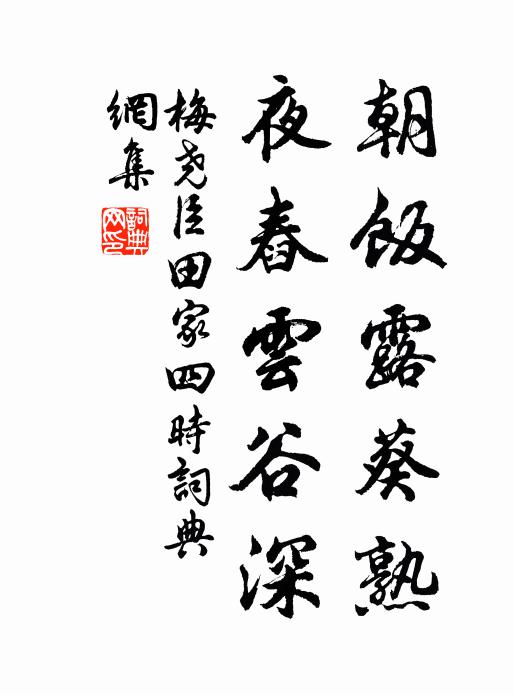 朝飯露葵熟
夜舂雲谷深
梅尧臣田家四時詞典
網集
詞典
网印